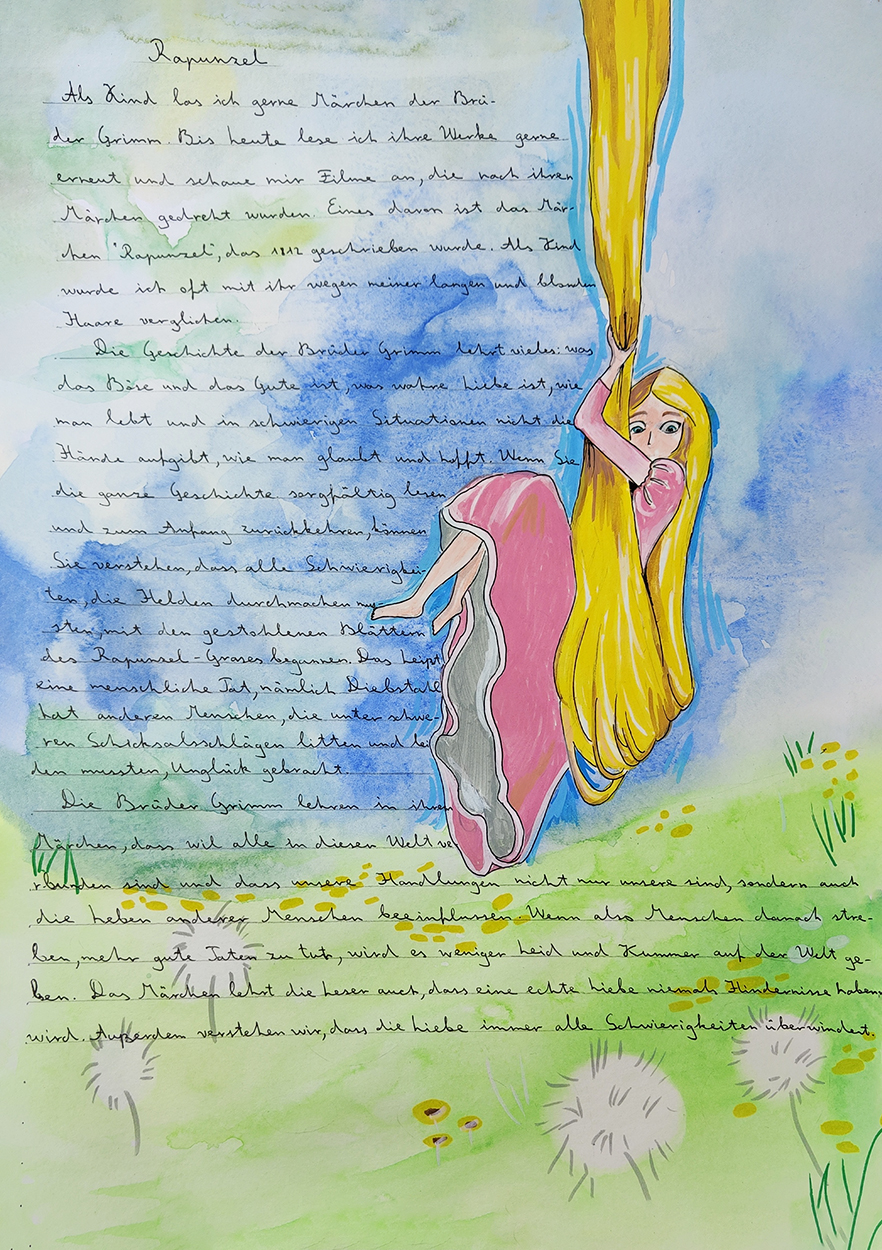 Rapunzel
Als Kind las ich gerne Märchen der Brü-
der Grimm. Bis heute lese ich ihre Werke gerne
erneut und schaue mir Filme an, die nach ihren
Märchen gedreht wurden. Eines davon ist das Mär-
chen "Rapunzel", das 1812 geschrieben wurde. Als Kind
wurde ich oft mit ihr wegen meiner langen und blonden
Haare verglichen.
Die Geschichte der Brüder Grimm lehrt vieles: was
das Böse und das Gute ist, was wahre Liebe ist, wie
man lebt und in schwierigen Situationen nicht die
Hände aufgibt, wie man glaubt und hofft. Wenn Sie
die ganze Geschichte sorgfältig lesen
und zum Anfang zurückkehren, können
Sie verstehen, dass alle Schwierigkei-
ten, die Helden durchmachen mus
sten, mit den gestohlenen Blättern
des Rapunsel-Grases begannen. Das heißt
eine menschliche Tat, nämlich Diebstall
hat anderen Menschen, die unter schwe-
ren Schicksalsschlägen litten und lei
den mussten, Unglück gebracht.
Die Brüder Grimm lehren in ihren
Märchen, dass wil alle in diesen Welt ve
rbunden sind und dass unsere Handlungen nicht nur unsere sind, sondern auch
die Leben anderer Menschen beeinflussen. Wenn also Menschen danach stre-
ben, mehr gute Taten zu tun, wird es weniger Leid und Kummer auf der Welt ge-
ben. Das Märchen lehrt die Leser auch, dass eine echte Liebe niemals Hindernisse haben
wird. Außerdem verstehen wir, dass die Liebe immer alle Schwierigkeiten überwindet.